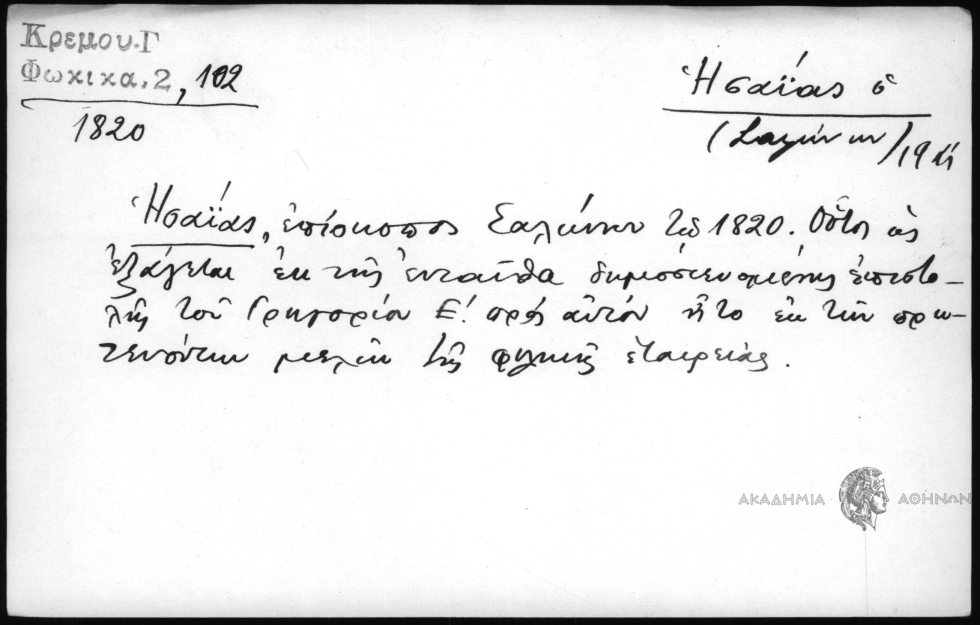 Κρεμου.Γ
Φωκικα.2, 102
1820
Ἡσαΐας ὁ
(Σαλώνων) 19
Ἡσαΐας, ἐπίσκοπος Σαλώνων τῷ 1820. Οὗτος ὡς
ἐξάγεται ἐκ τῆς ἐνταῦθα δημοσιευομένης ἐπιστο-
λῆς τοῦ Γρηγορίου Ε΄. πρὸς αὐτὸν ἦτο ἐκ τῶν πρω-
τευόντων μελῶν τῆς φιλικῆς ἑταιρείας.
ΑΚΑΔΗΜΙΑ ΑΘΗΝΩΝ